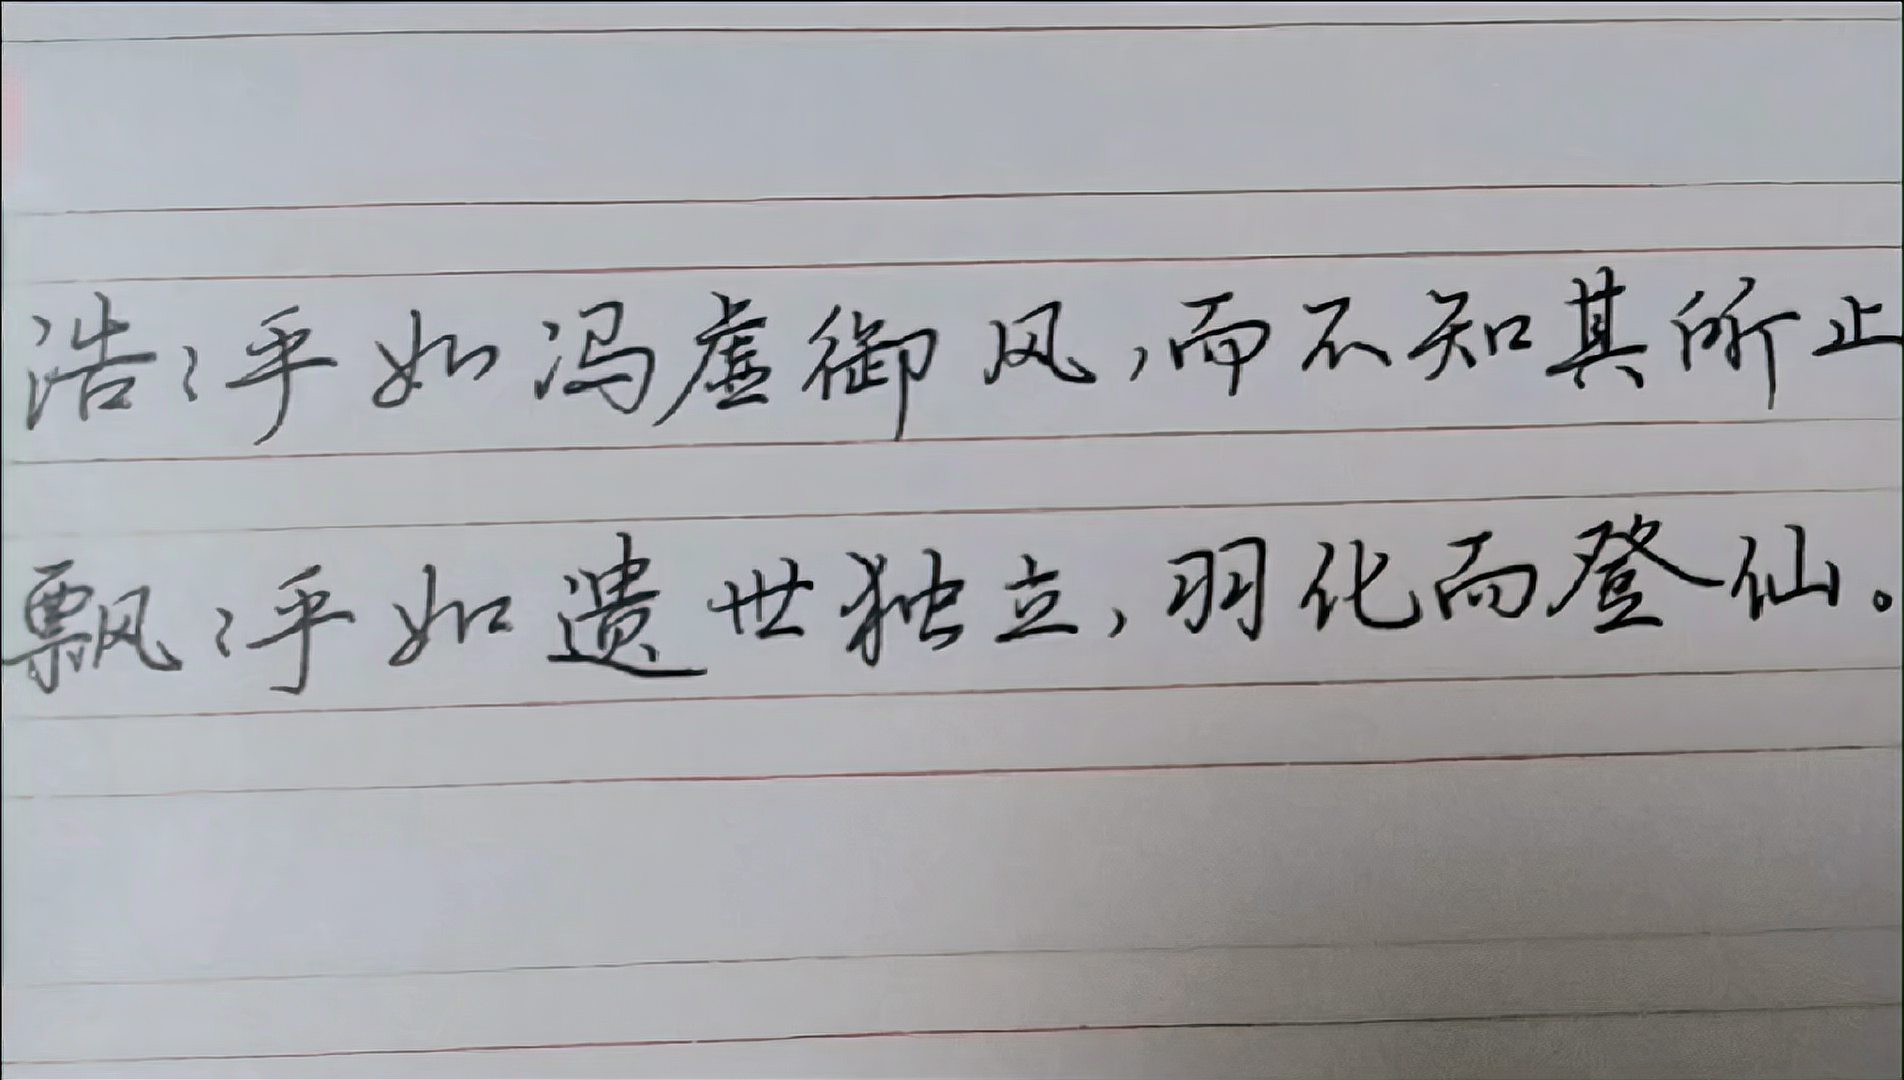 浩々乎如冯虚御风，而不知其所止
飘々乎如遗世独立，羽化而登仙。